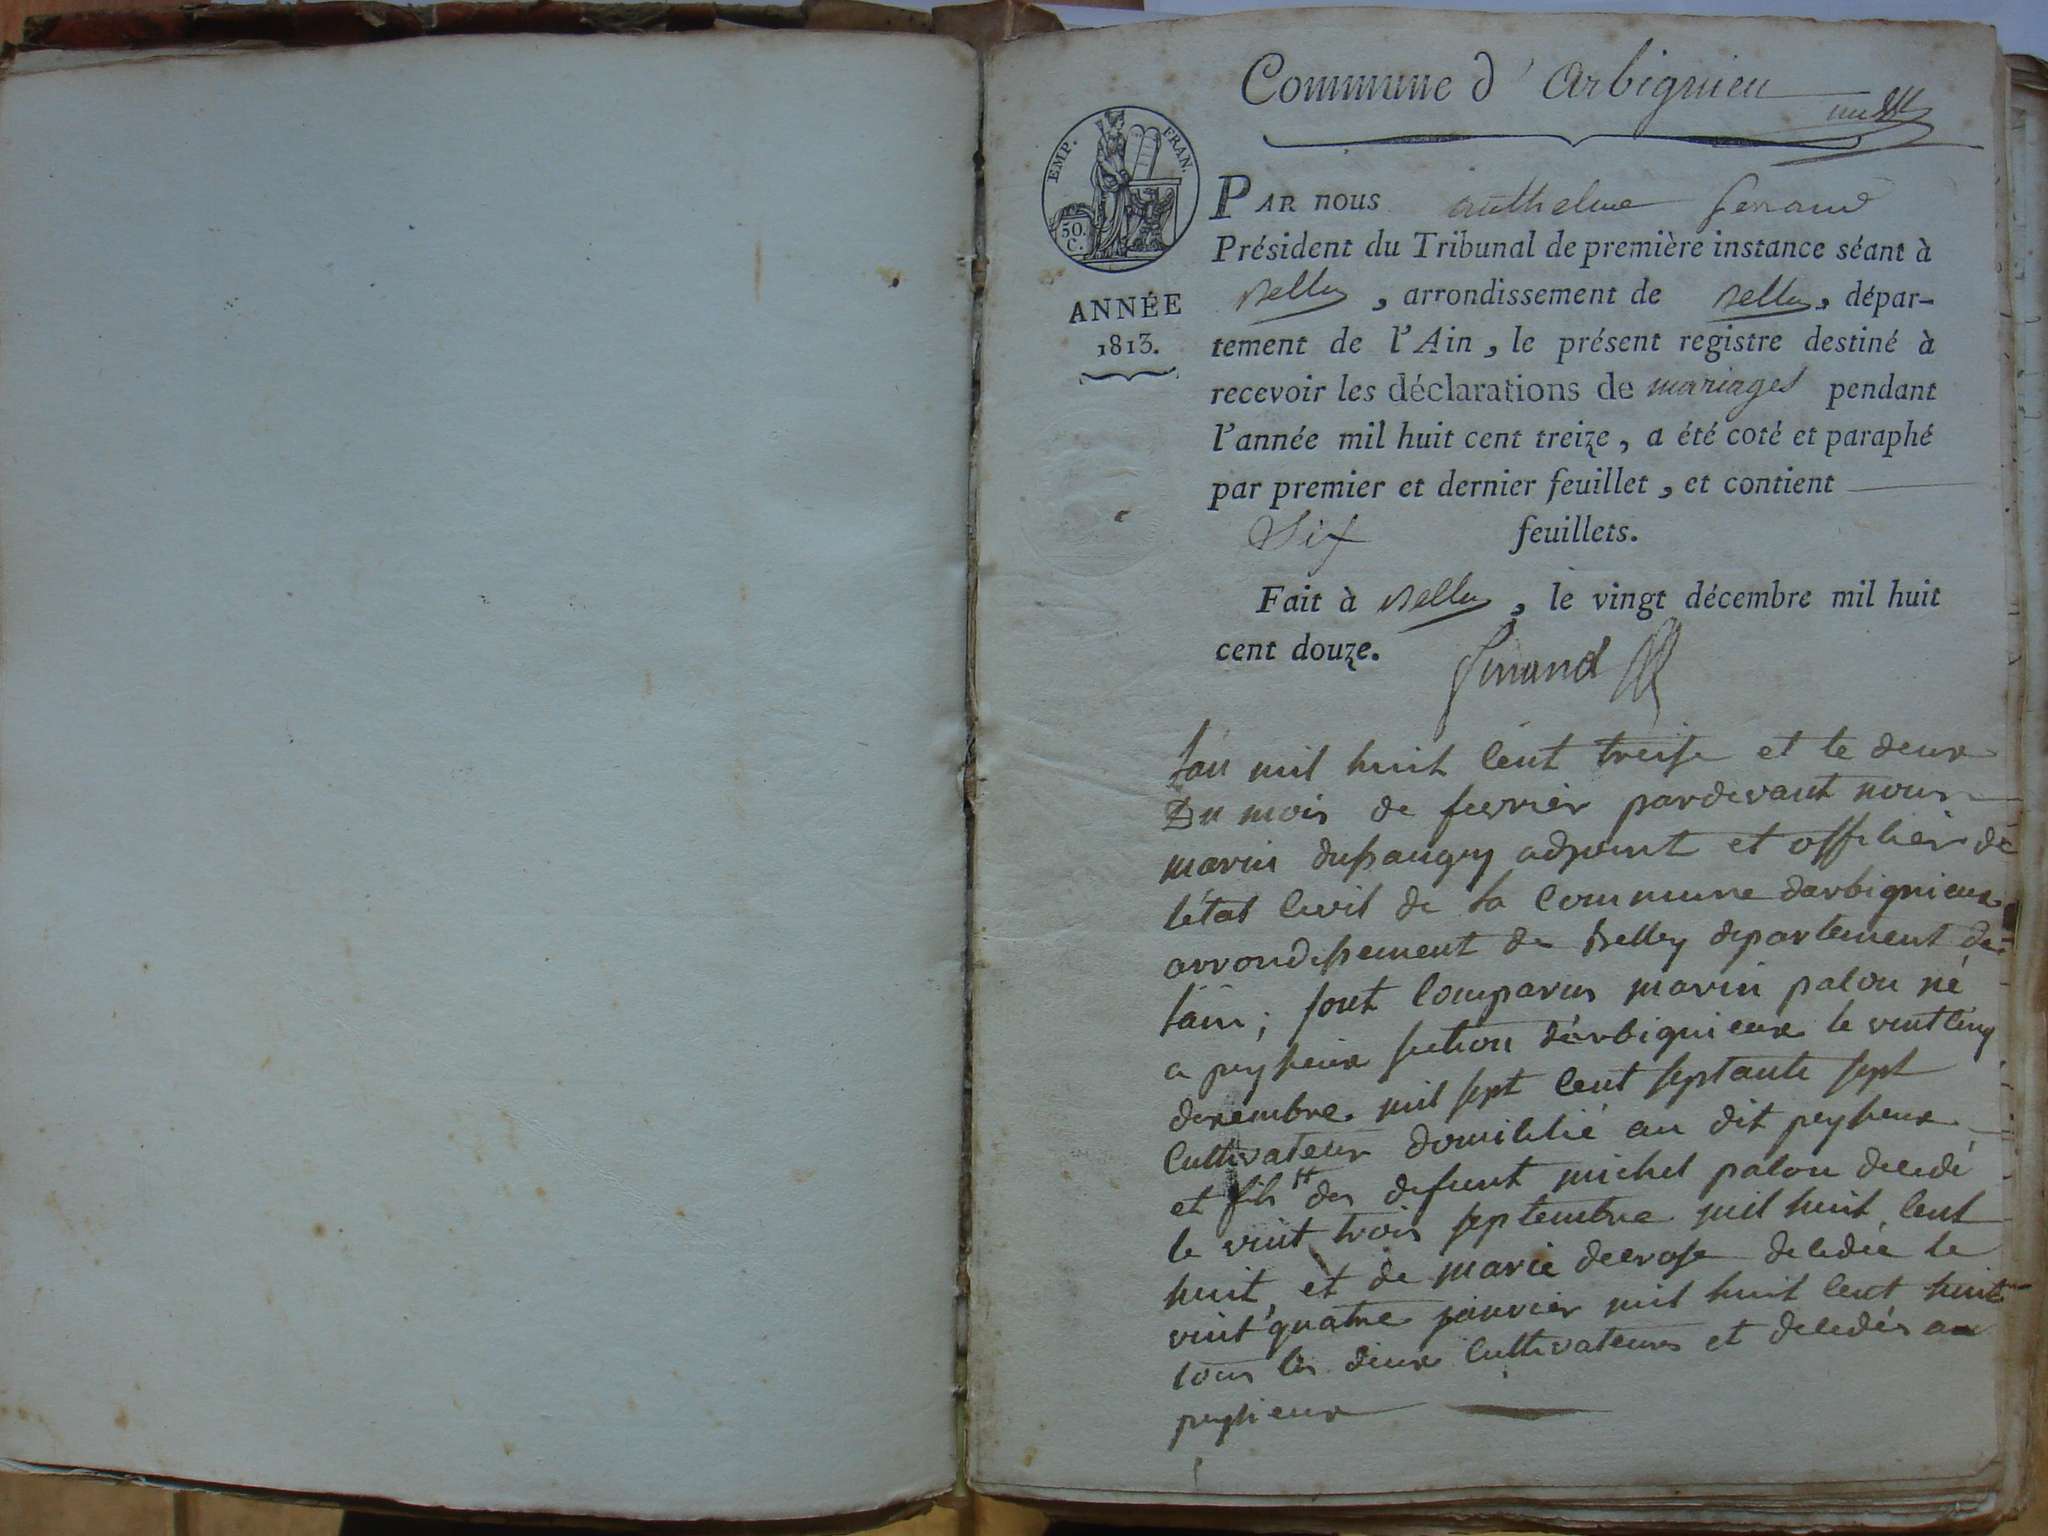 Commune d' Arbignieu
EMP. FRAN.
50.
C.
ANNÉE
1813.
PAR nous anthelme ferrand
Président du Tribunal de première instance séant à
Belley, arrondissement de Belley, dépar-
tement de l'Ain, le présent registre destiné à
recevoir les déclarations de mariages pendant
l'année mil huit cent treize, a été coté et paraphé
par premier et dernier feuillet, et contient
Six feuillets.
Fait à Belley, le vingt décembre mil huit
cent douze.
ferrand
Lan mil huit Cent treise et le deux
Du mois de fevrier pardevant nous
marin dussaugey adjoint et officier de
létat Civil de la Commune darbignieux
arrondissement de Belley departement de
lain; sont Comparus marin palou né
a peyzieux section d'arbignieux le vintcinq
decembre mil sept Cent septante sept
Cultivateur domicilié au dit peyzieux
et fils des defunt michel palou decedé
le vint trois septembre mil huit Cent
huit, et de marie decrose decedée le
vint quatre janvier mil huit Cent huit
tous les deux Cultivateurs et decedés a
peyzieux